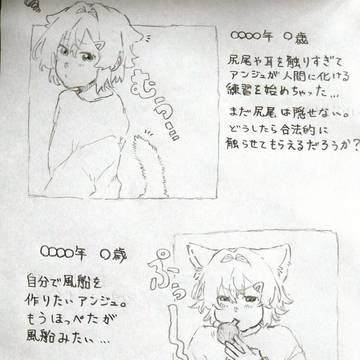 ○○○○年 ○歳
尻尾や耳を触りすぎて
アンジュが人間に化ける
練習を始めちゃった…
まだ尻尾は隠せない。
どうしたら合法的に
触らせてもらえるだろうか?
むぃっ…
○○○○年 ○歳
自分で風船を
作りたいアンジュ。
もうほっぺたが
風船みたい…
ぷぅー